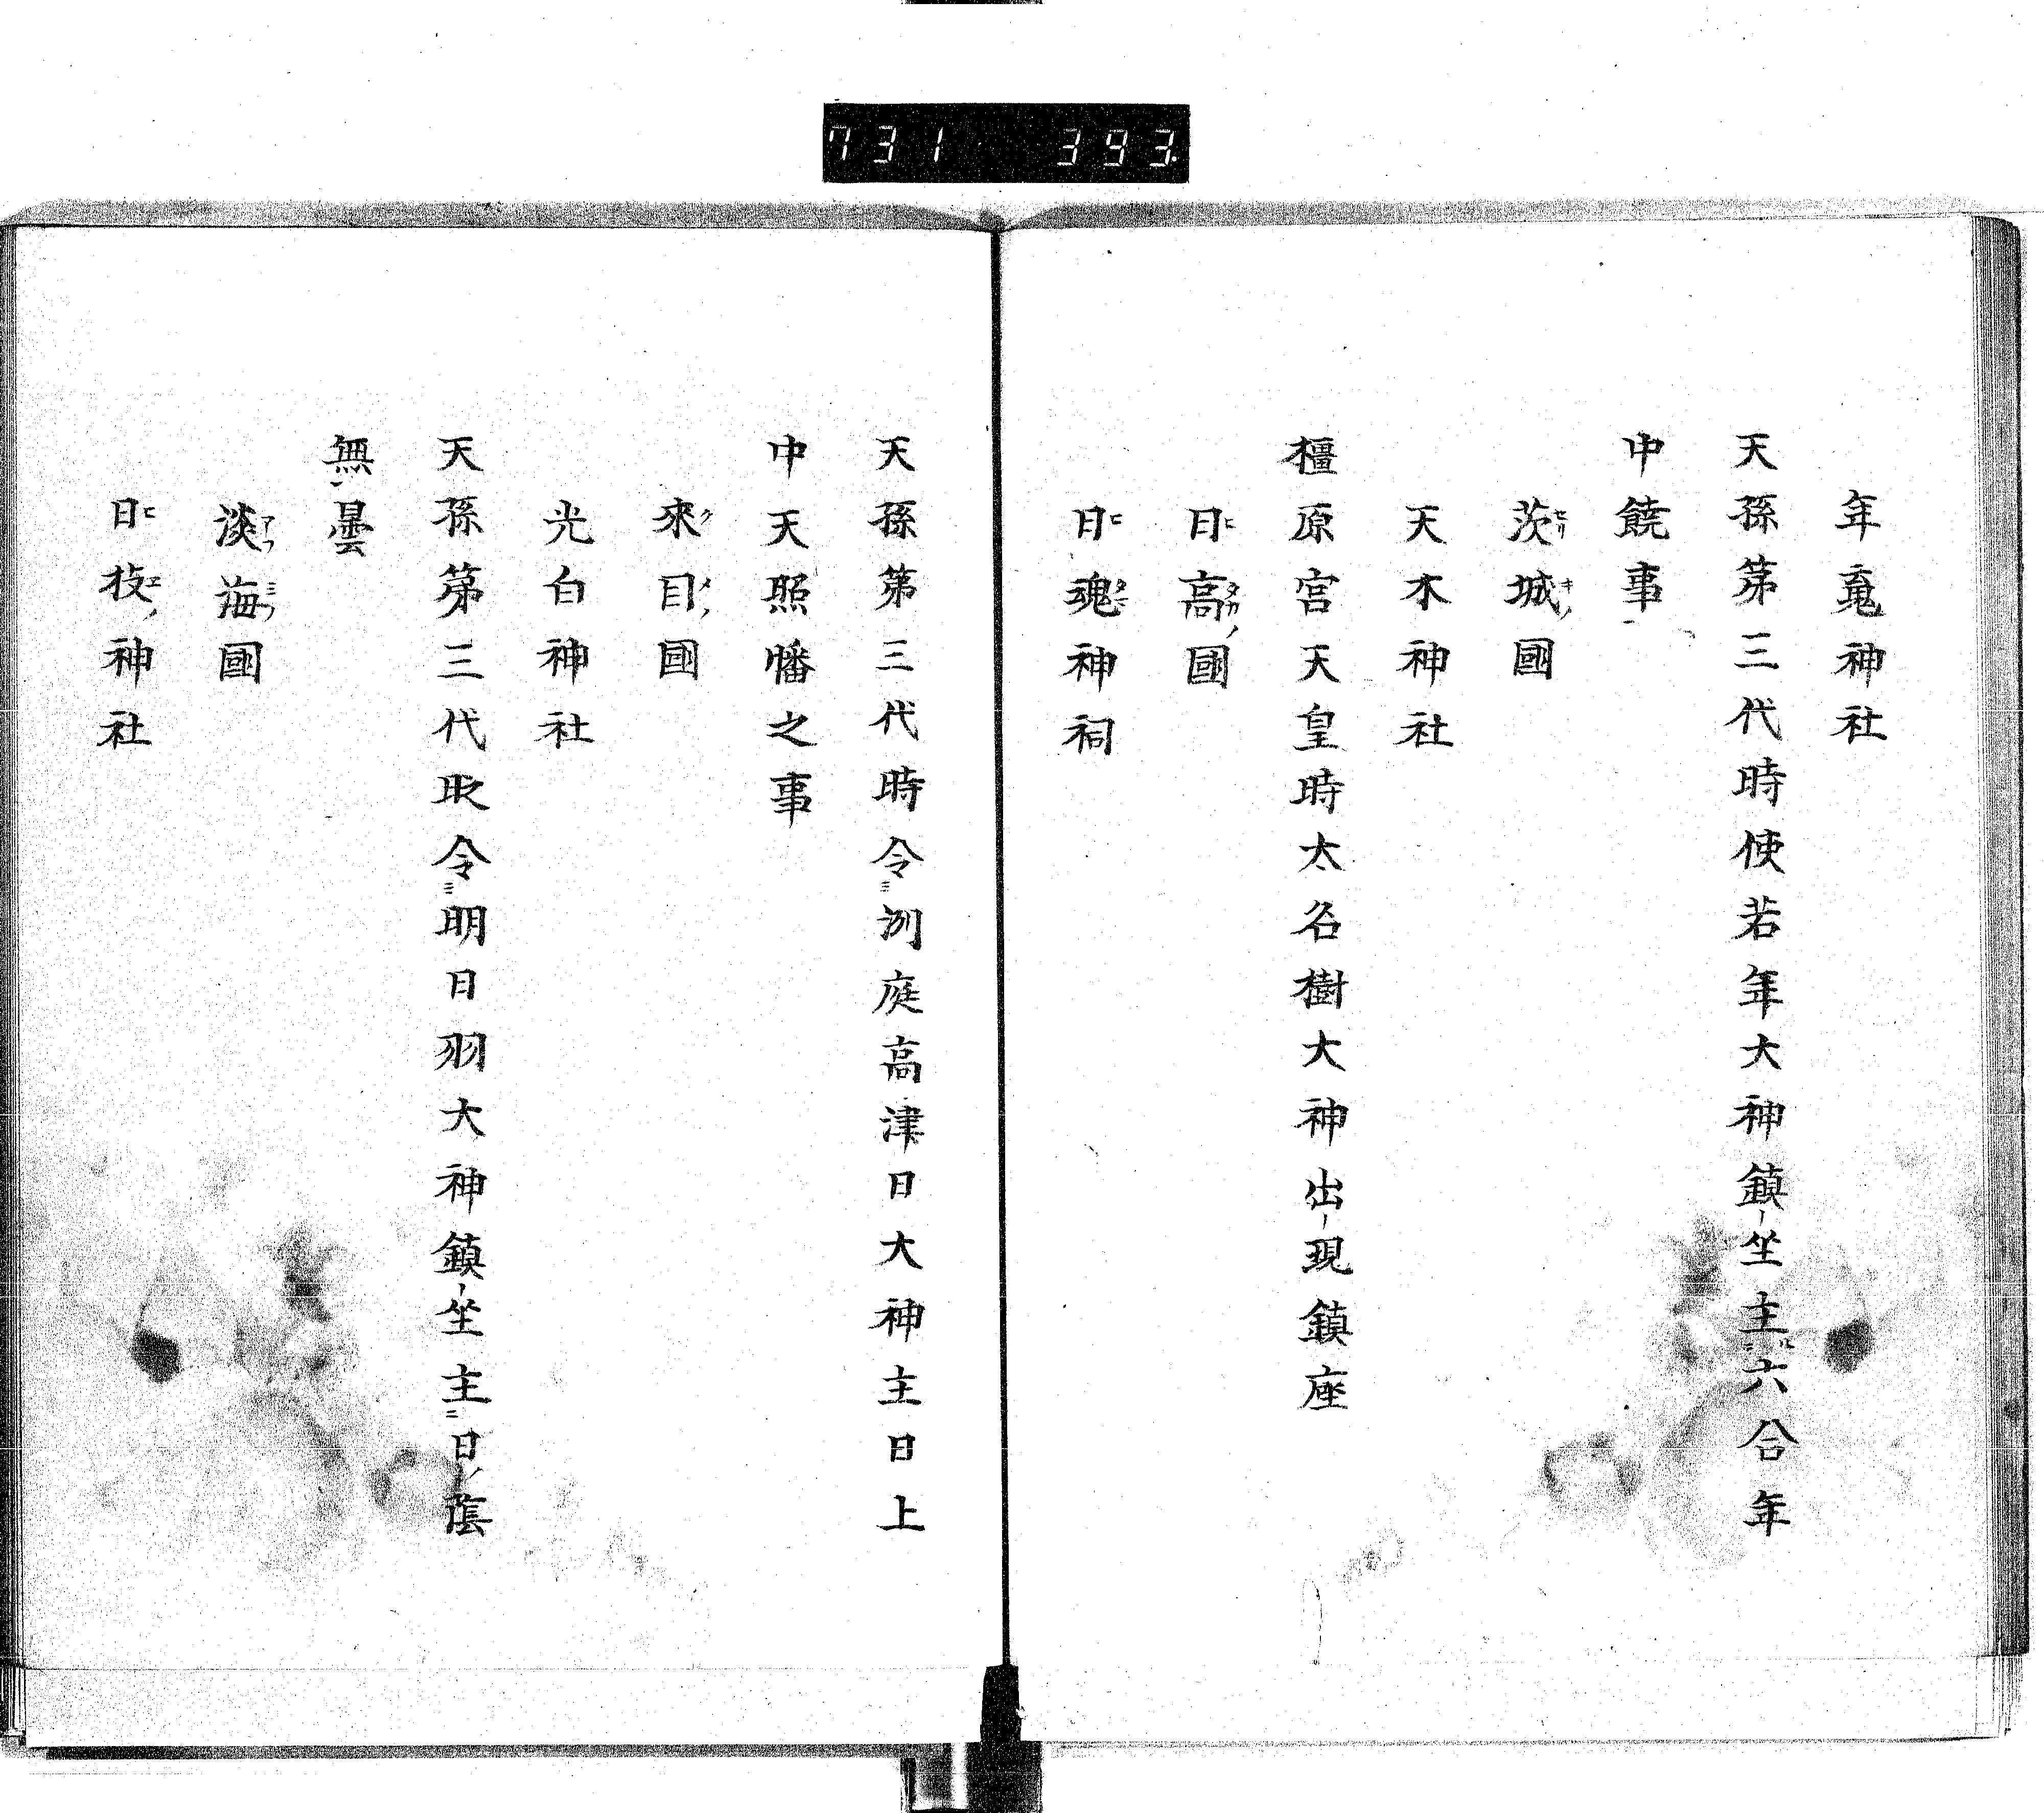 731 393.
年竃神社
天孫第三代時使若年大神鎮坐主六合年
中饒事
茨城國
天木神社
橿原宮天皇時太名樹大神出現鎮座
日高國
日魂神祠
天孫第三代時令冽庭高津日大神主日上
中天照幡之事
來目國
光白神社
天孫第三代取令明日羽大神鎮坐主日蔭
無曇
淡海國
日枝神社